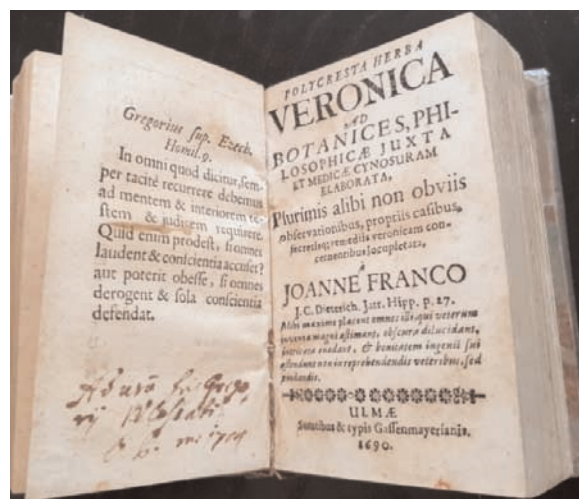 Gregorius sup. Ezech.
Homil. 9.
In omni quod dicitur, sem-
per tacitè recurrere debemus
ad mentem & interiorem te-
stem & judicem requirere.
Quid enim prodest, si omnes
laudent & conscientia accuset?
aut poterit obesse, si omnes
derogent & sola conscientia
defendat.
Ad usū
POLYCRESTA HERBA
VERONICA
AD
BOTANICES, PHI-
LOSOPHICÆ JUXTA
ET MEDICÆ CYNOSURAM
ELABORATA,
Plurimis alibi non obviis
observationibus, propriis casibus,
secretisq; remediis veronicam con-
cernentibus locupletata,
à
JOANNE FRANCO
J. C. Dieterich. Jatr. Hipp. p. 27.
Mihi maximè placent omnes illi, qui veterum
inventa magni æstimant, obscura dilucidant,
intricata enodant, & bonitatem ingenii sui
ostendunt non in reprehendendis veteribus, sed
imitandis.
ULMÆ
Sumtibus & typis Gassenmayerianis.
1690.